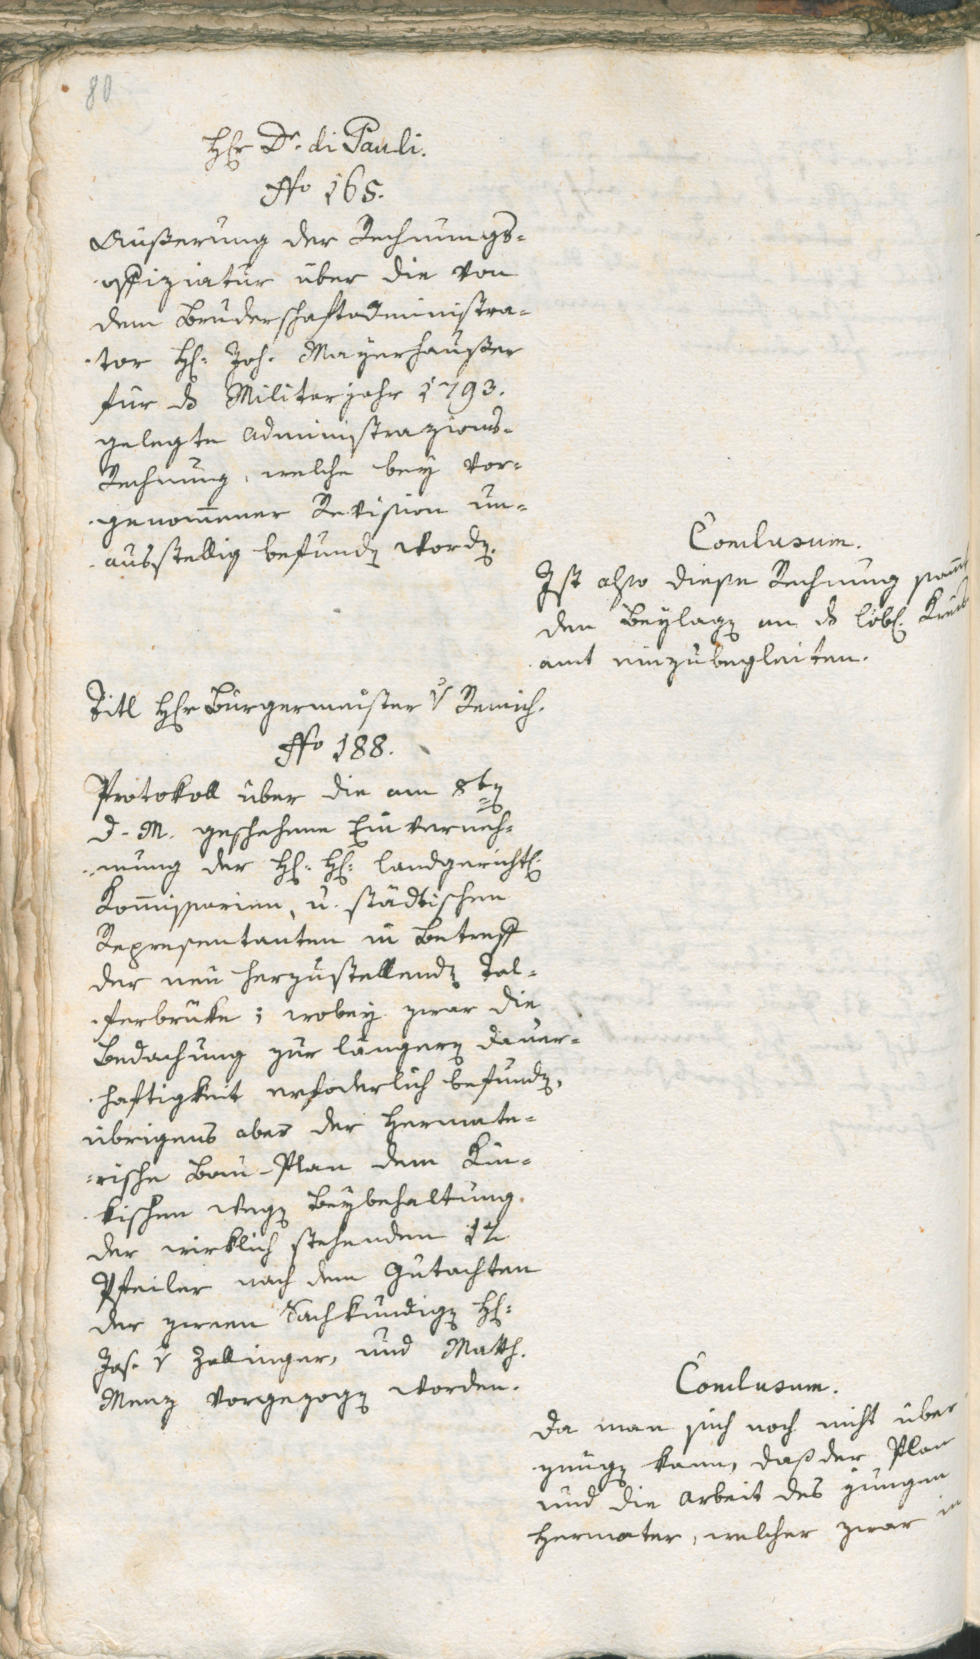 80
H[er]r Dr. di Pauli.
No 165.
Äußerung der Rechnungs-
offiziatur über die von
dem Bruderschaftadministra-
tor H: Joh. Mayrhauser
für ds Militarjahr 1793.
gelegte Administrazions-
Rechnung, welche bey vor-
genom̅ener Revision un-
ausstellig befunden worden.
Conclusum.
Ist also diese Rechnung sam̅t
den Beylagen an ds löbl. Kreis
amt einzubegleiten.
Titl Herr Bürgermeister v Remich.
No 188.
Protokoll über die am 8ten
d. M. geschehene Einverneh-
mung der H: H: landgerichtl.
Kom̅issarien, u. städtischen
Representanten in Betreff
der neu herzustellenden Tal-
ferbrüke; wobey zwar die
Bedachung zur längern Dauer-
haftigkeit erfoderlich befunden,
übrigens aber der Hermate-
rische Bau-Plan dem Kin-
kischen wegen Beybehaltung
der wirklich stehenden 12
Pfeiler nach dem Gutachten
der zween Sachkundigen H:
Jos. v Zallinger, und Matth.
Menz vorgezogen worden.
Conclusum.
Da man sich noch nicht über
zeugen kann, daß der Plan
und die Arbeit des jungen
Hermater, welcher zwar in